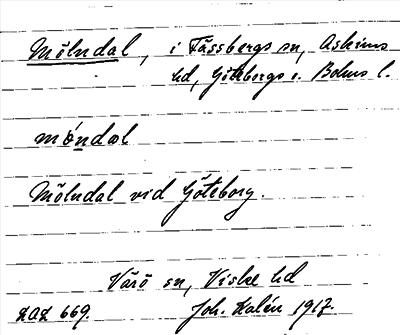 Mölndal, i Fässbergs sn, Askims
hd, Göteborgs o. Bohus l.
móndal
Mölndal vid Göteborg.
Värö sn, Viske hd
Joh. Kalén 1917